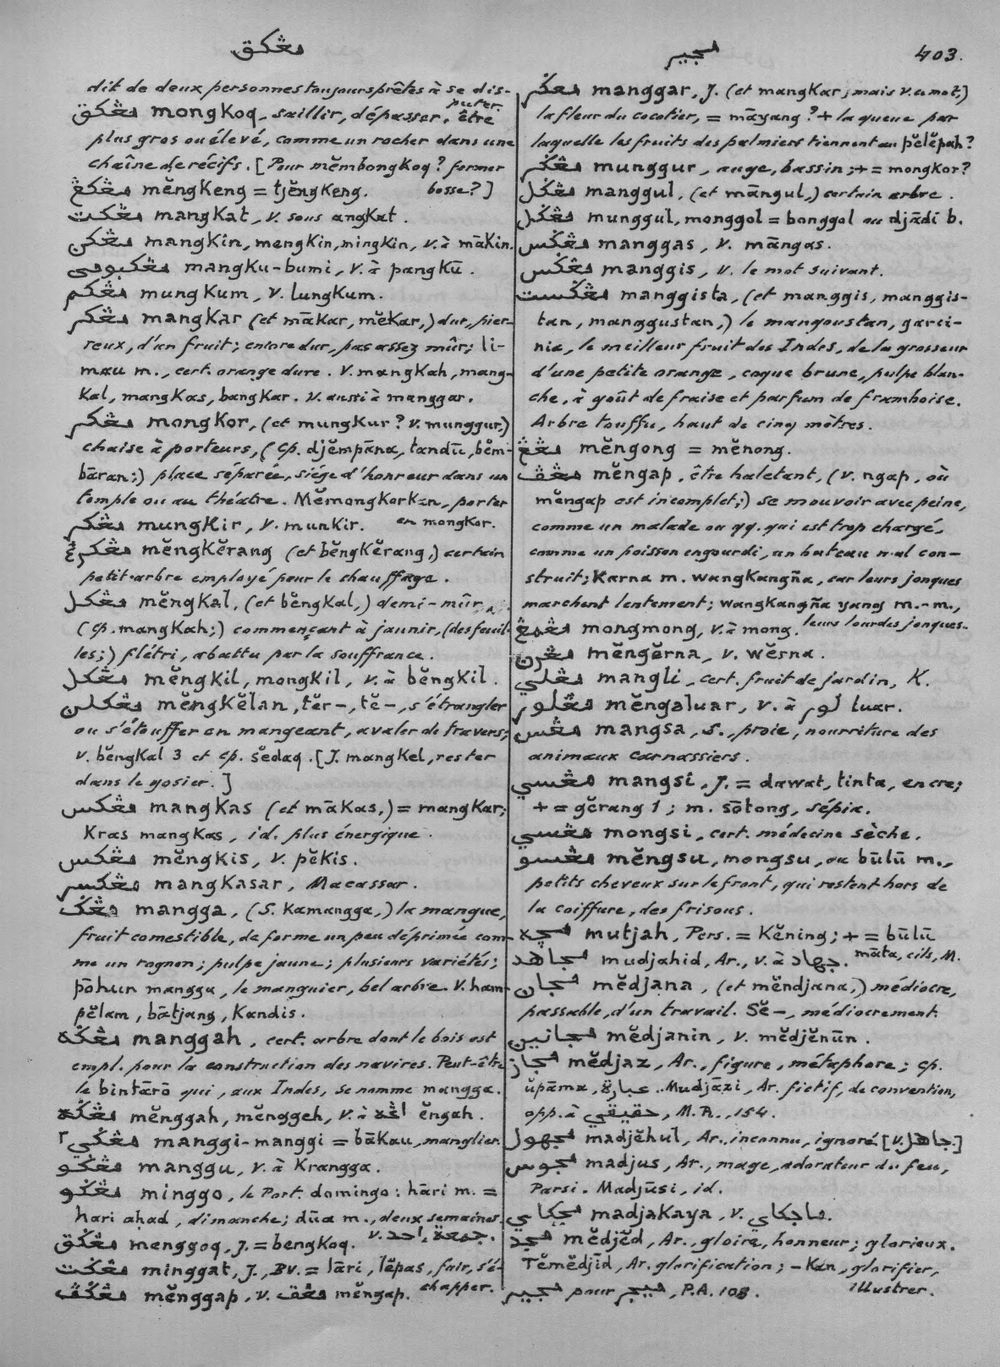 مڠكق
مجير
403.
dit de deux personnes toujours prêtes à se dis-
puter.
مڠكق mongkoq, saillir, dépasser, être
plus gros ou élevé, comme un rocher dans une
chaîne de récifs. [Pour mĕmbongkoq? former
bosse?]
مڠكڠ mĕngkeng = tjĕngkeng.
مڠكت mangkat, v. sous angkat.
مڠكن mangkin, mengkin, mingkin, v. à mākin.
مڠكبومي mangku-bumi, v. à pangkū.
مڠكم mungkum, v. lungkum.
مڠكر mangkar (et mākar, mĕkar,) dur, pier-
reux, d'un fruit; encore dur, pas assez mûr; li-
mau m., cert. orange dure. v. mangkah, mang-
kal, mangkas, bangkar. v. aussi à manggar.
مڠكر mongkor, (et mungkur? v. munggur,)
chaise à porteurs, (cp. djĕmpāna, tandū, bĕm-
bāran;) place séparée, siége d'honneur dans un
temple ou au théatre. Mĕmongkorkan, porter
en mongkor.
مڠكر mungkir, v. munkir.
مڠكرڠ mĕngkĕrang (et bĕngkĕrang,) certain
petit arbre employé pour le chauffage.
مڠكل mĕngkal, (et bĕngkal,) demi-mûr,
(cp. mangkah;) commençant à jaunir, (des feuil-
les;) flétri, abattu par la souffrance.
مڠكل mĕngkil, mongkil, v. à bĕngkil.
مڠكلن mĕngkĕlan, tĕr-, tĕ-, s'étrangler
ou s'étouffer en mangeant, avaler de travers;
v. bĕngkal 3 et cp. sĕdaq. [J. mangkel, rester
dans le gosier.]
مڠكس mangkas (et mākas,) = mangkar;
kras mangkas, id. plus énergique.
مڠكس mĕngkis, v. pĕkis.
مڠكسر mangkasar, Macassar.
مڠݢ mangga, (S. kamangga,) la mangue,
fruit comestible, de forme un peu déprimée com-
me un rognon; pulpe jaune; plusieurs variétés;
pōhun mangga, le manguier, bel arbre. v. ham-
pĕlam, bātjang, kandis.
مڠݢه manggah, cert. arbre dont le bois est
empl. pour la construction des navires. Peut-être
le bintārō qui, aux Indes, se nomme mangga.
مڠݢه mĕnggah, mĕnggeh, v. à اڠه ĕngah.
مڠݢي٢ manggi-manggi = bākau, manglier.
مڠݢو manggu, v. à krangga.
مڠݢو minggo, le Port. domingo: hāri m. =
hari aḥad, dimanche; dūa m., deux semaines.
v. احد, جمعة.
مڠݢق menggoq, J. = bengkoq.
مڠݢت minggat, J., BV. = lāri, lĕpas, fuir, s'é-
chapper.
مڠݢف mĕnggap, v. مڠف mĕngap.
مڠݢر manggar, J. (et mangkar; mais v. ce mot;)
la fleur du cocotier, = māyang? + la queue par
laquelle les fruits des palmiers tiennent au pĕlĕpah?
مڠݢر munggur, auge, bassin; + = mongkor?
مڠݢل manggul, (et māngul,) certain arbre.
مڠݢل munggul, monggol = bonggol ou djādi b.
مڠݢس manggas, v. māngas.
مڠݢس manggis, v. le mot suivant.
مڠݢست manggista, (et manggis, manggis-
tan, manggustan,) le mangoustan, garci-
nia, le meilleur fruit des Indes, de la grosseur
d'une petite orange, coque brune, pulpe blan-
che, à goût de fraise et parfum de framboise.
Arbre touffu, haut de cinq mètres.
مڠڠ mĕngong = mĕnong.
مڠف mĕngap, être haletant, (v. ngap, où
mĕngap est incomplet;) se mouvoir avec peine,
comme un malade ou qq. qui est trop chargé,
comme un poisson engourdi, un bateau mal con-
struit; karna m. wangkangña, car leurs jonques
marchent lentement; wangkangña yang m.-m.,
leurs lourdes jonques.
مڠمڠ mongmong, v. à mong.
مڠرن mĕngĕrna, v. wĕrna.
مڠلي mangli, cert. fruit de jardin, K.
مڠلور mĕngaluar, v. à لور luar.
مڠس mangsa, S., proie, nourriture des
animaux carnassiers.
مڠسي mangsi, J. = dawat, tinta, encre;
+ = gĕrang 1; m. sōtong, sépia.
مڠسي mongsi, cert. médecine sèche.
مڠسو mĕngsu, mongsu, ou būlū m.,
petits cheveux sur le front, qui restent hors de
la coiffure, des frisons.
مچه mutjah, Pers. = kĕning; + = būlū
māta, cils, M.
مجاهد mudjahid, Ar., v. à جهاد.
مجان mĕdjana, (et mĕndjana,) médiocre,
passable, d'un travail. Sĕ-, médiocrement.
مجانين mĕdjanin, v. mĕdjĕnūn.
مجاز mĕdjaz, Ar., figure, métaphore; cp.
ŭpāma, عبارة. Mudjāzi, Ar. fictif, de convention,
opp. à حقيقي, M.R., 154.
مجهول madjĕhul, Ar., inconnu, ignoré. [v. جاهل.]
مجوس madjus, Ar., mage, adorateur du feu,
Parsi. Madjūsi, id.
مجكاي madjakaya, v. ماجكاي.
مجد mĕdjĕd, Ar., gloire, honneur; glorieux.
Tĕmĕdjīd, Ar. glorification; -kan, glorifier,
illustrer.
مجير pour ميجر, P.A. 108.